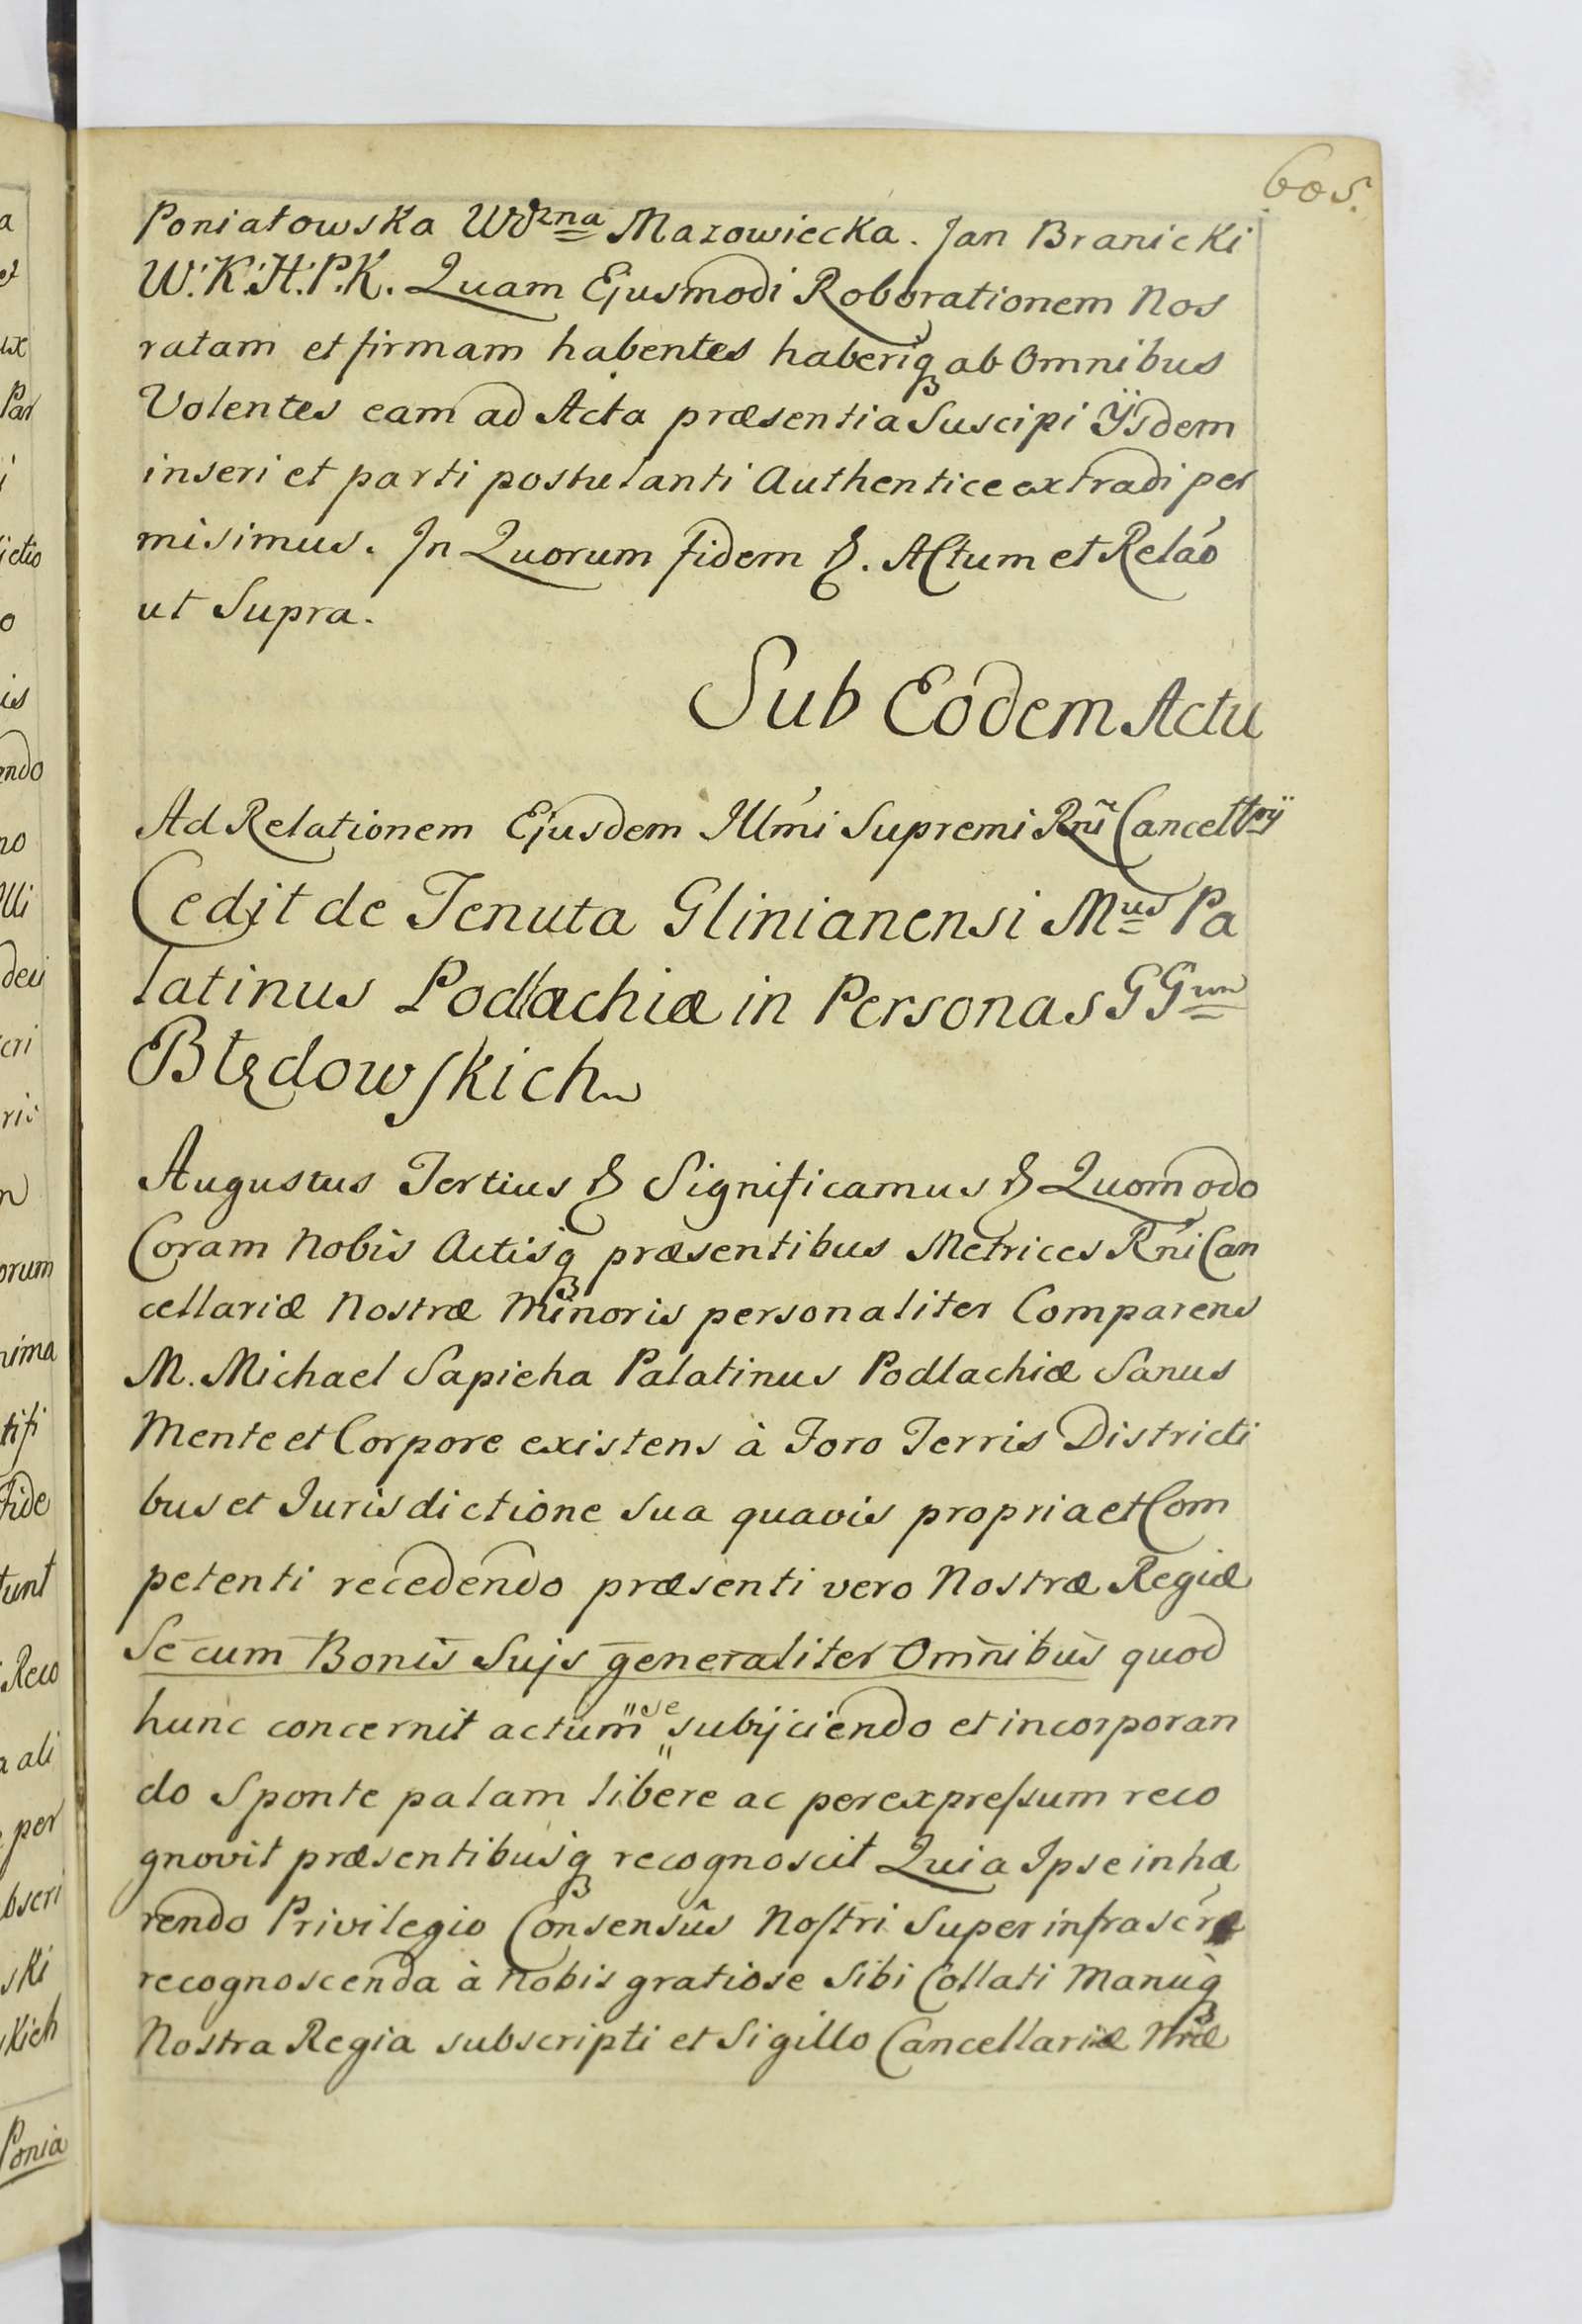 605.
Poniatowska Wdzna Mazowiecka. Jan Branicki
W. K. H. P. K. Quam Ejusmodi Roborationem Nos
ratam et firmam habentes haberiq ab Omnibus
Volentes eam ad Acta præsentia Suscipi Ÿsdem
inseri et parti postulanti Authentice extradi per
misimus. In Quorum fidem &. Actum et Relão
ut Supra.
Sub Eodem Actu
Ad Relationem Ejusdem Illmi Supremi Rni Cancellrij
Cedit de Tenuta Glinianensi Mus Pa
latinus Podlachiæ in Personas GGum
Błędowskich
Augustus Tertius & Significamus & Quomodo
Coram Nobis Actisq præsentibus Metrices Rni Can
cellariæ Nostræ Minoris personaliter Comparens
M. Michael Sapieha Palatinus Podlachiæ Sanus
Mente et Corpore existens à Foro Terris Districti
bus et Jurisdictione sua quavis propria et Com
petenti recedendo præsenti vero Nostræ Regiæ
Se cum Bonis Sujs generaliter Omnibus quod
hunc concernit actum se subijciendo et incorporan
do Sponte palam libere ac per expressum reco
gnovit præsentibusq recognoscit Quia Ipse inhæ
rendo Privilegio Consensûs Nostri Super infrascra
recognoscenda à Nobis gratiose Sibi Collati Manuq
Nostra Regia subscripti et Sigillo Cancellariæ Nræ